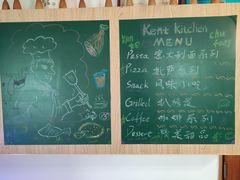 Kent Kitchen
MENU
Pasta 意大利面系列
Pizza 批萨系列
Snack 风味小吃
Grilled 扒
Coffee 咖啡系列
Dessert 甜品